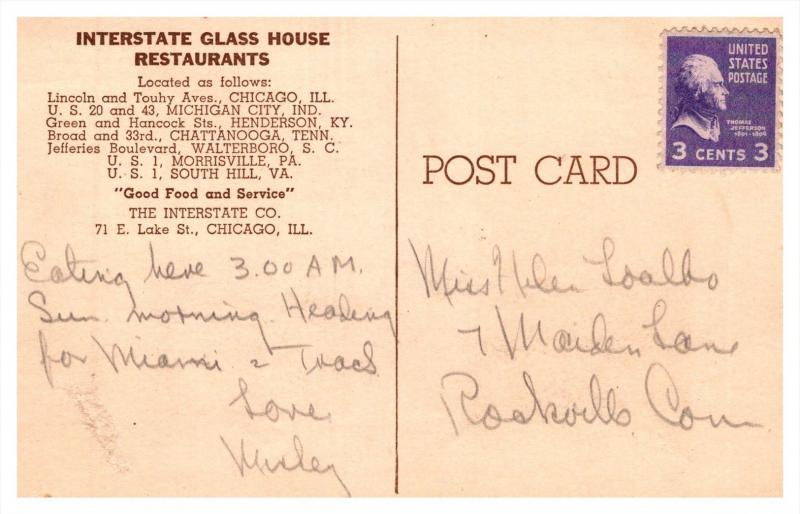 INTERSTATE GLASS HOUSE
RESTAURANTS
Located as follows:
Lincoln and Touhy Aves., CHICAGO, ILL.
U. S. 20 and 43, MICHIGAN CITY, IND.
Green and Hancock Sts., HENDERSON, KY.
Broad and 33rd., CHATTANOOGA, TENN.
Jefferies Boulevard, WALTERBORO, S. C.
U. S. 1, MORRISVILLE, PA.
U. S. 1, SOUTH HILL, VA.
"Good Food and Service"
THE INTERSTATE CO.
71 E. Lake St., CHICAGO, ILL.
Eating here 3.00 A M.
Sun. morning. Heading
for Miami &
Love
UNITED
STATES
POSTAGE
THOMAS
JEFFERSON
1801-1809
3 CENTS 3
POST CARD
Miss Helen
7 Maiden Lane
Rockville Conn